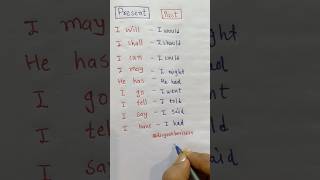 Present Past
I will - I would
I shall - I should
I can - I could
I may - I might
He has - He had
I go - I went
I tell - I told
I say - I said
I have - I had